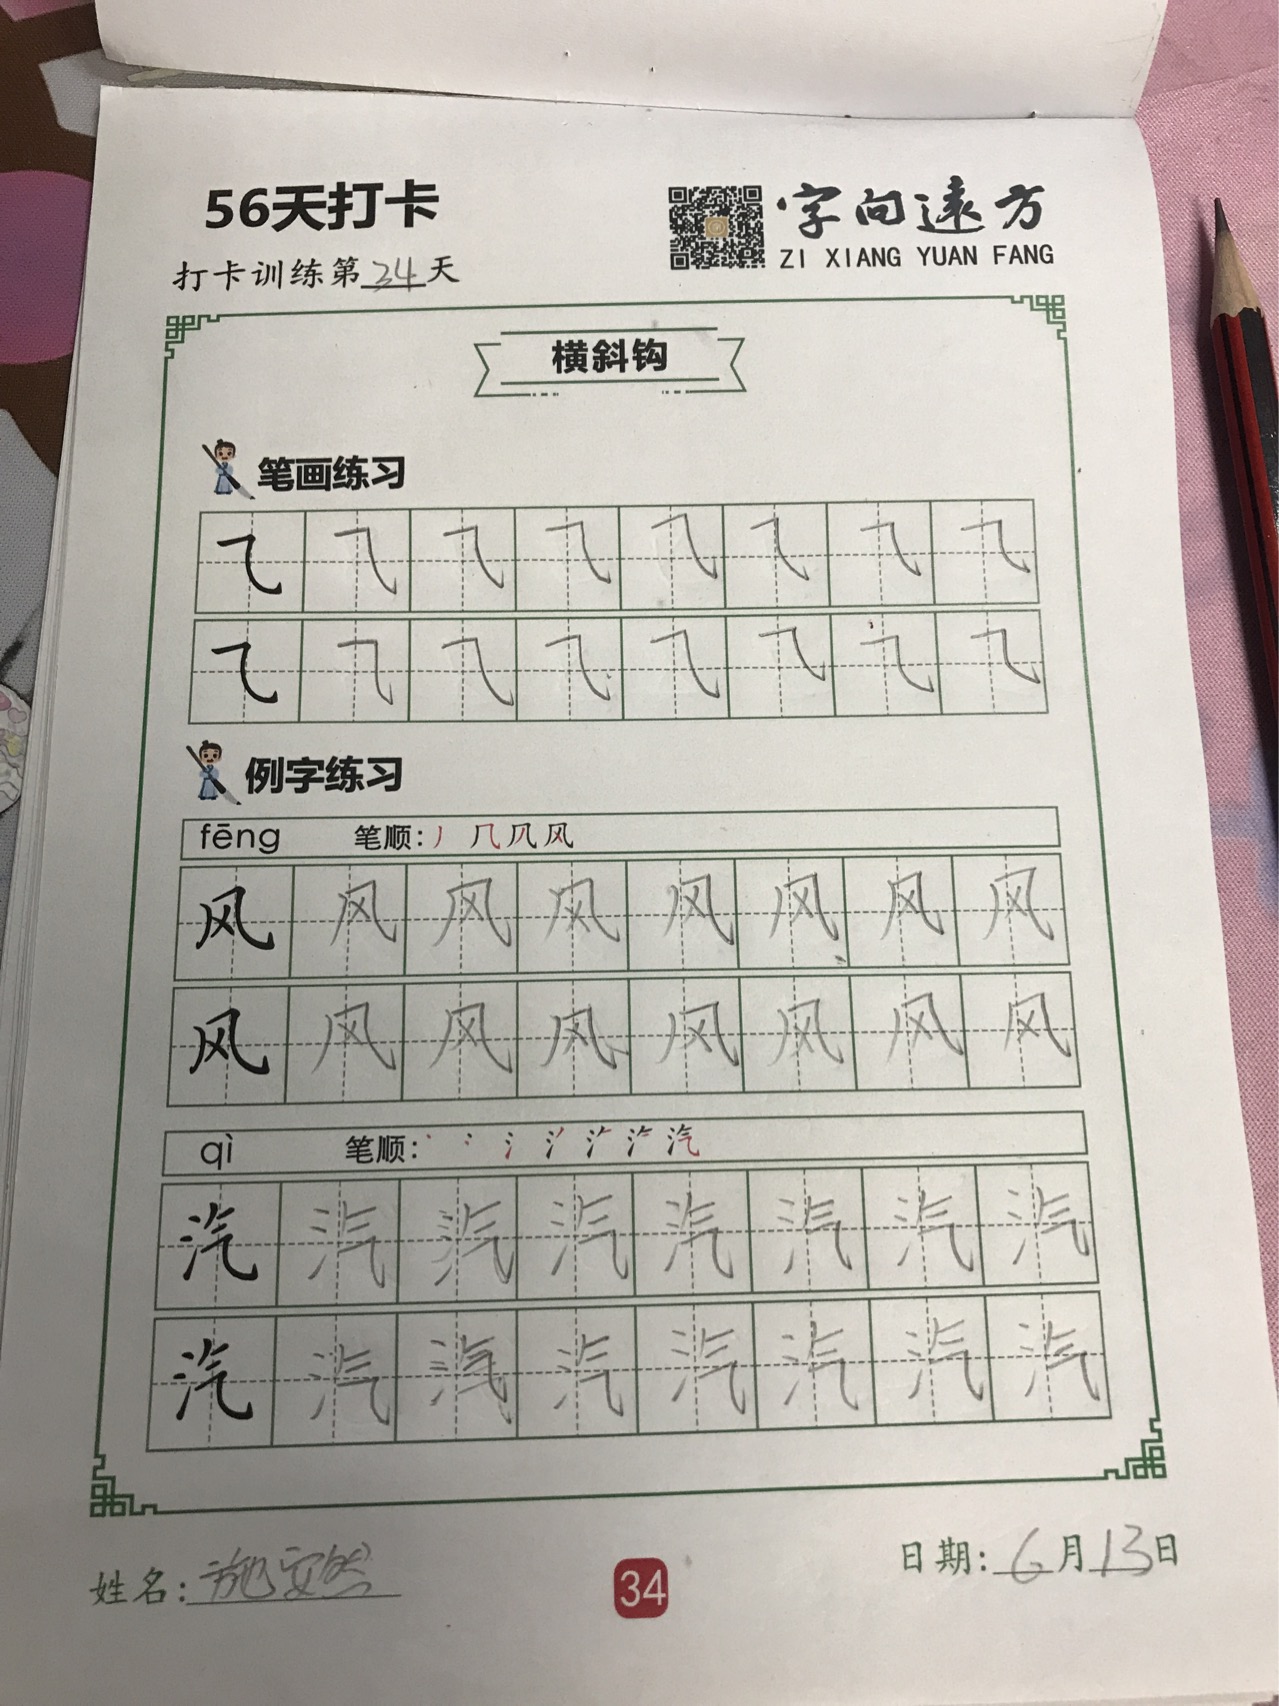 56天打卡
字向远方
ZI XIANG YUAN FANG
打卡训练第34天
横斜钩
笔画练习
⺄ ⺄ ⺄ ⺄ ⺄ ⺄ ⺄ ⺄
⺄ ⺄ ⺄ ⺄ ⺄ ⺄ ⺄ ⺄
例字练习
fēng 笔顺: 丿 几 风
风 风 风 风 风 风 风 风
风 风 风 风 风 风 风 风
qì 笔顺: 丶 氵 汽
汽 汽 汽 汽 汽 汽 汽 汽
汽 汽 汽 汽 汽 汽 汽 汽
姓名: 施安然
34
日期: 6月13日